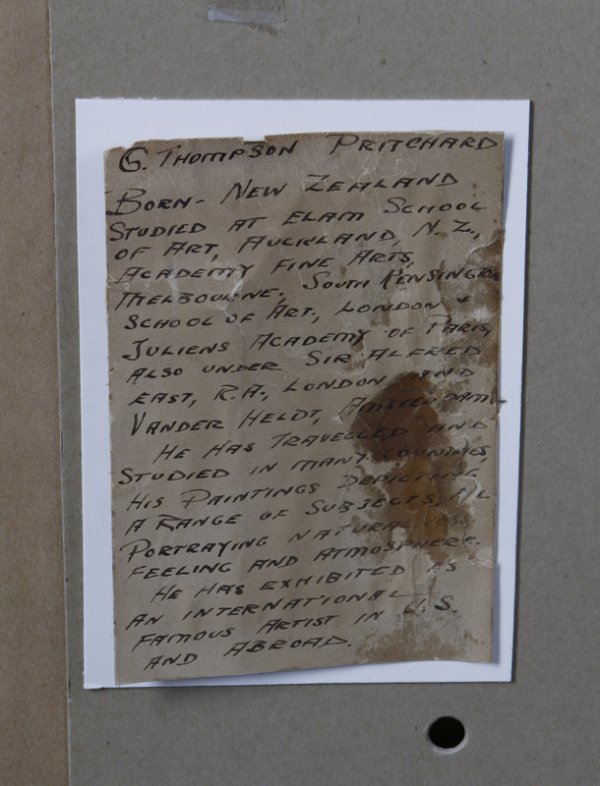 G. THOMPSON PRITCHARD
BORN - NEW ZEALAND
STUDIED AT ELAM SCHOOL
OF ART, AUCKLAND, N.Z.,
ACADEMY FINE ARTS,
MELBOURNE, SOUTH KENSINGTON
SCHOOL OF ART, LONDON &
JULIENS ACADEMY OF PARIS,
ALSO UNDER SIR ALFRED
EAST, R.A., LONDON AND
VANDER HELDT, AMSTERDAM.
HE HAS TRAVELLED AND
STUDIED IN MANY COUNTRIES,
HIS PAINTINGS DEPICTING
A RANGE OF SUBJECTS, ALL
PORTRAYING NATURALNESS,
FEELING AND ATMOSPHERE.
HE HAS EXHIBITED AS
AN INTERNATIONAL
FAMOUS ARTIST IN U.S.
AND ABROAD.